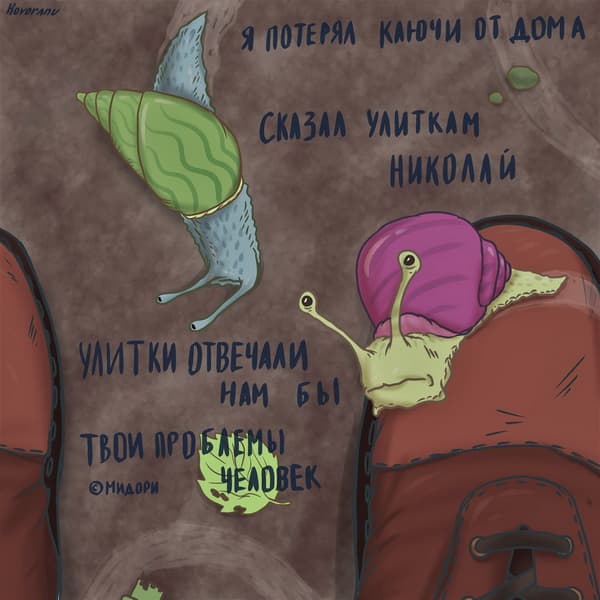 Hovoranu
Я ПОТЕРЯЛ КЛЮЧИ ОТ ДОМА
СКАЗАЛ УЛИТКАМ
НИКОЛАЙ
УЛИТКИ ОТВЕЧАЛИ
НАМ БЫ
ТВОИ ПРОБЛЕМЫ
ЧЕЛОВЕК
©МИДОРИ